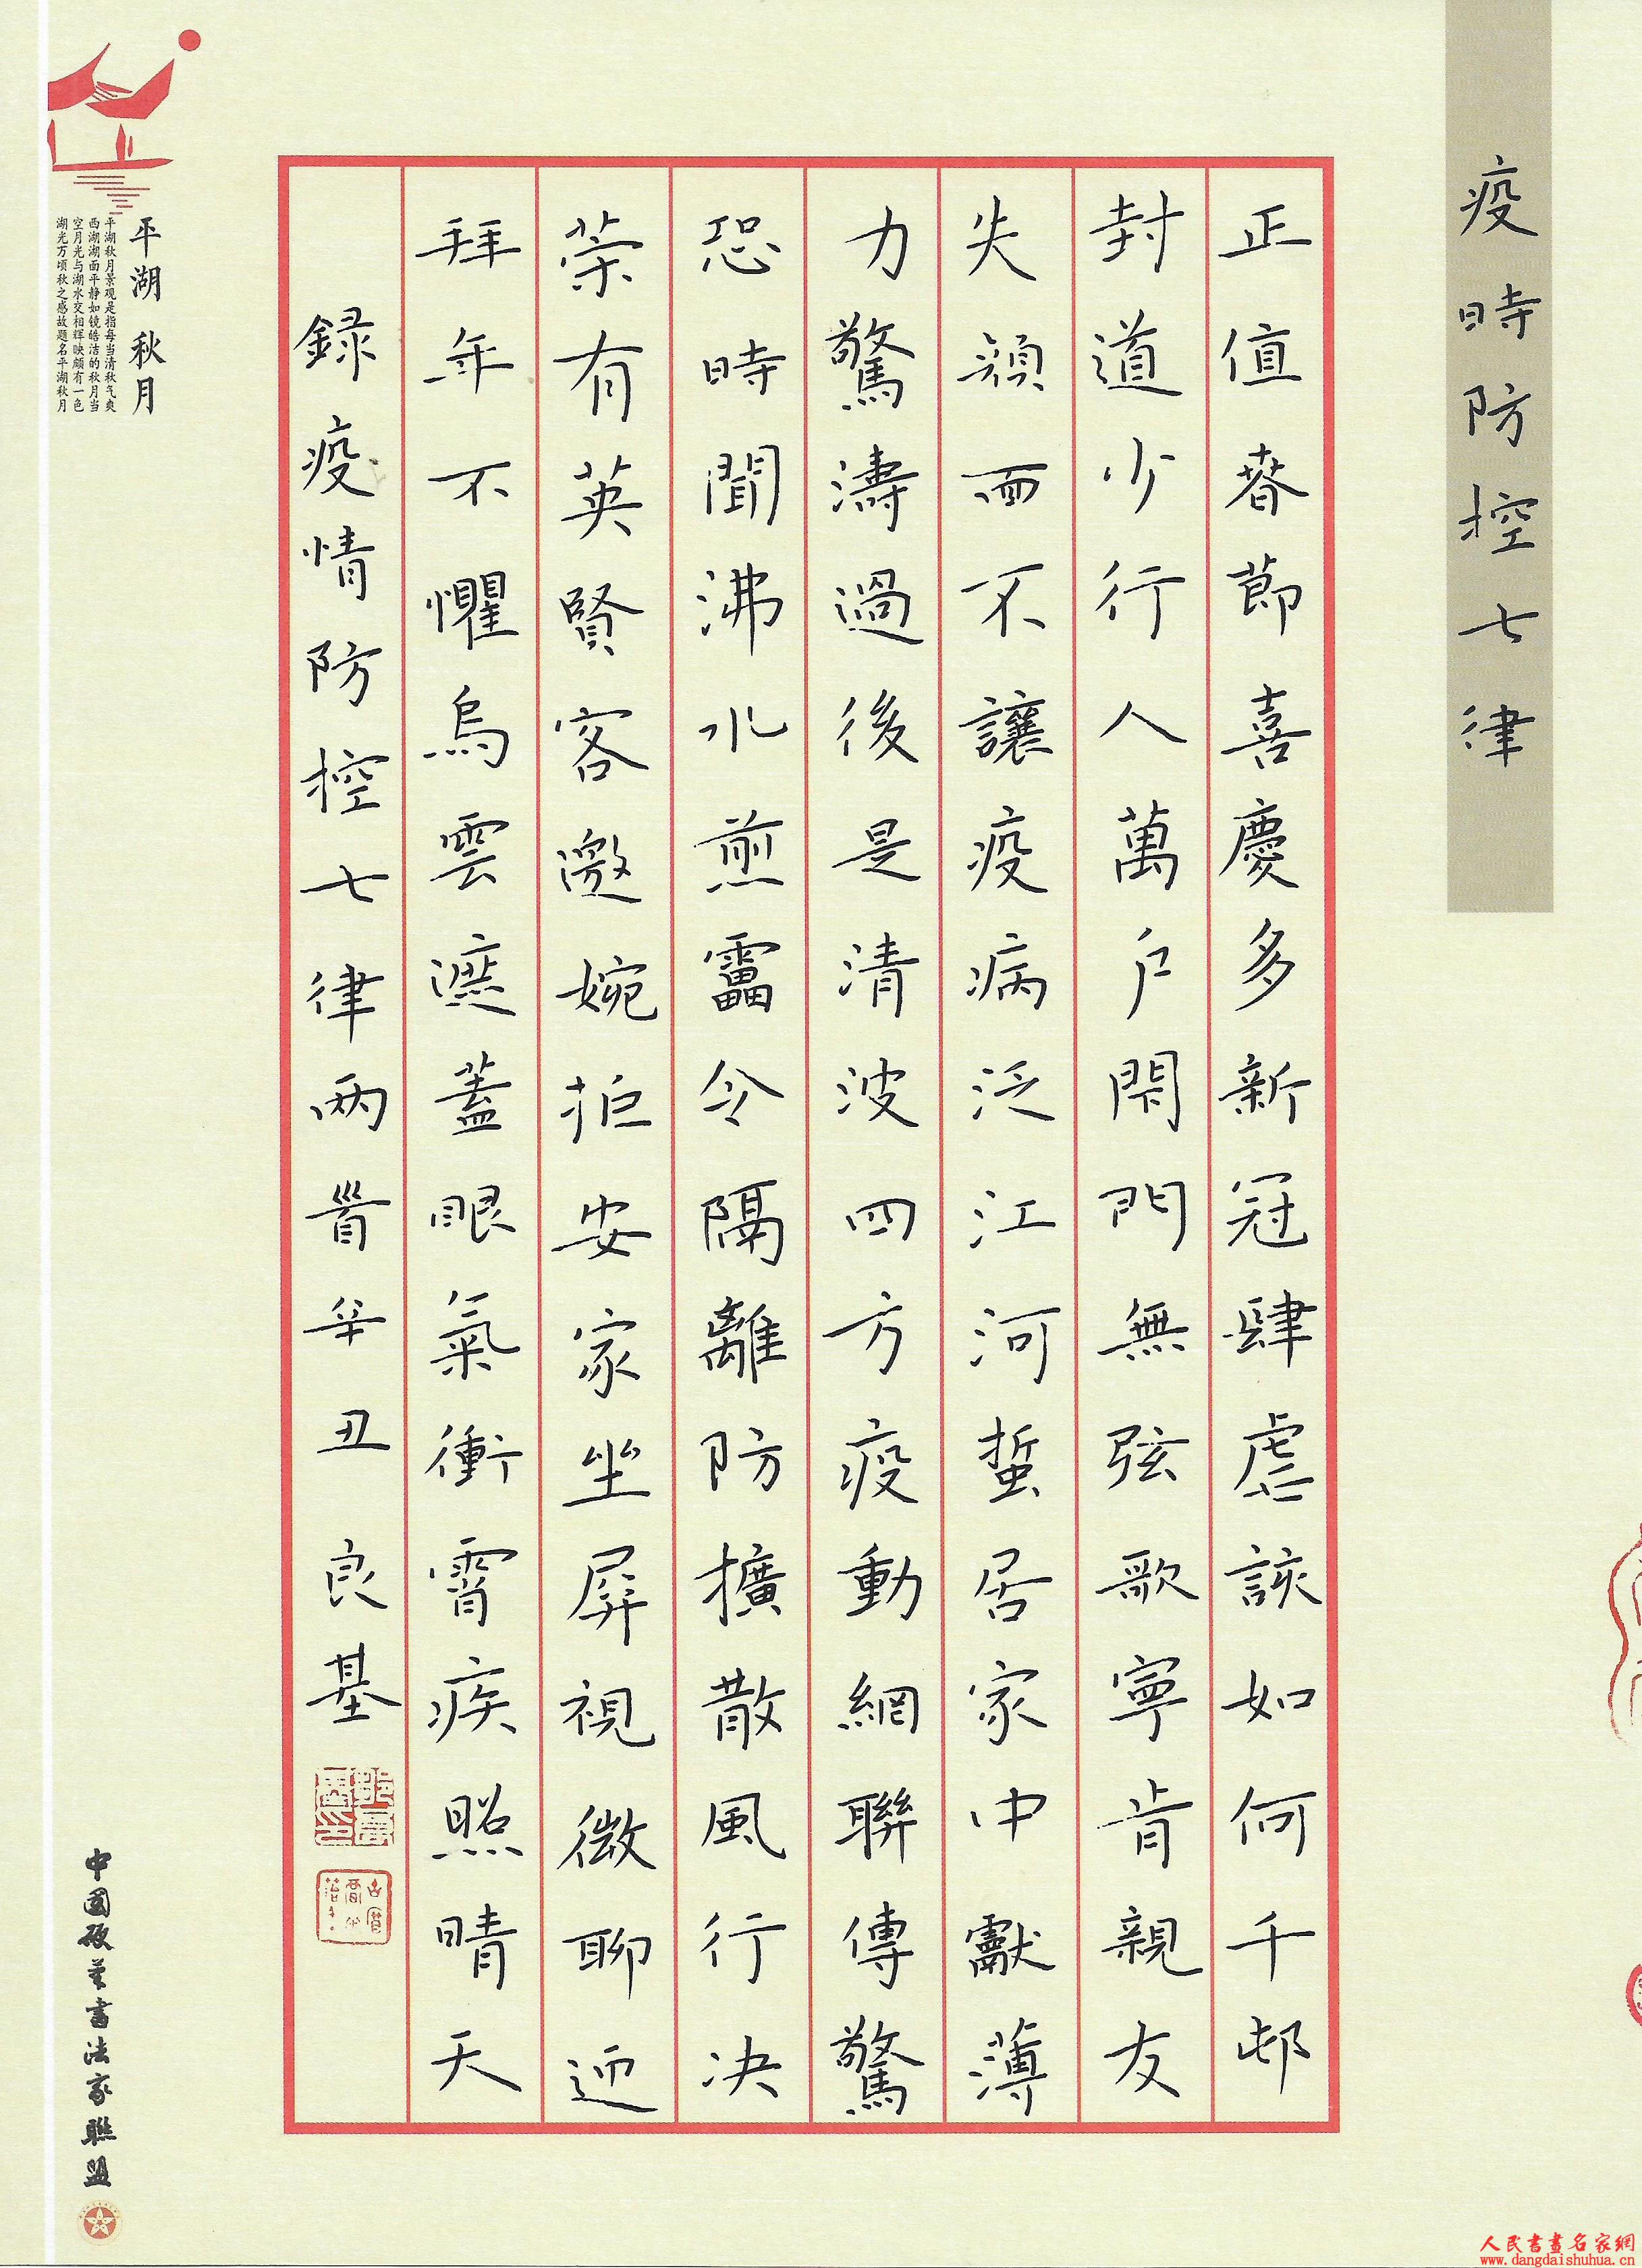 疫時防控七律
正值春節喜慶多新冠肆虐該如何千邨
封道少行人萬户閉門無弦歌寧肯親友
失顏面不讓疫病泛江河蜇居家中獻薄
力驚濤過後是清波四方疫動網聯傳驚
恐時聞沸水煎靁令隔離防擴散風行决
策有英賢客邀婉拒安家坐屏視微聊迎
拜年不懼烏雲遮蓋眼氣衝霄疾照晴天
録疫情防控七律兩首辛丑良基
平湖秋月
平湖秋月景观是指每当清秋气爽
西湖湖面平静如镜皓洁的秋月当
空月光与湖水交相辉映颇有一色
湖光万顷秋之感故题名平湖秋月
中國硬筆書法家聯盟
人民書畫名家網
www.dangdaishuhua.cn